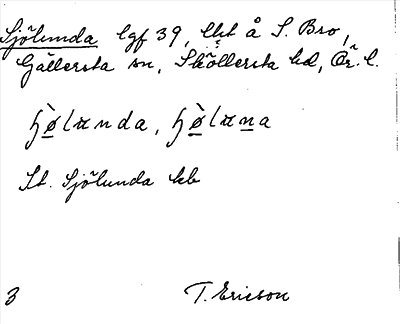 Sjölunda lgf 39, lht å S. Bro,
Gällersta sn, Sköllersta hd, Ör. l.
St. Sjölunda kb
3 T. Ericson